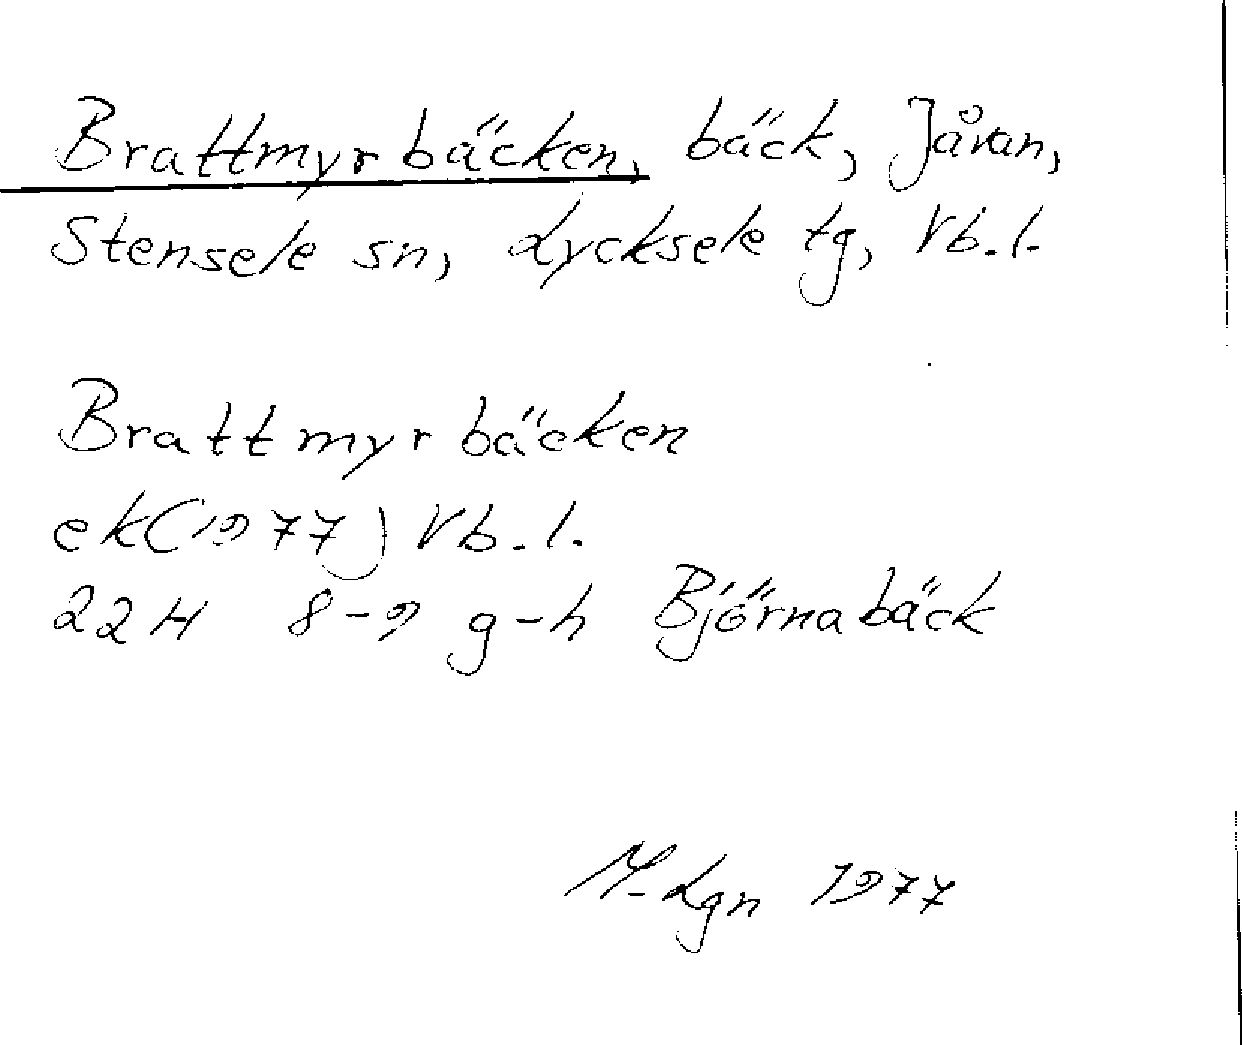 Brattmyrbäcken, bäck, Jåvan,
Stensele sn, Lycksele tg, Vb. l.
Brattmyrbäcken
ek (1977) Vb. l.
22H 8-9 g-h Björnabäck
M-Lgn 1977